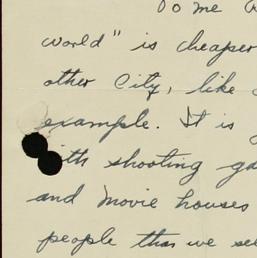 To me
world" is cheaper
other City, like
example. It is
ith shooting ga
and movie houses
people than we see